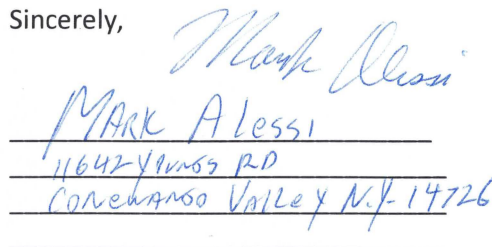 Sincerely,
Mark Alessi
MARK Alessi
11642 YOUNGS RD
CONEWANGO VALLEY N.Y. 14726